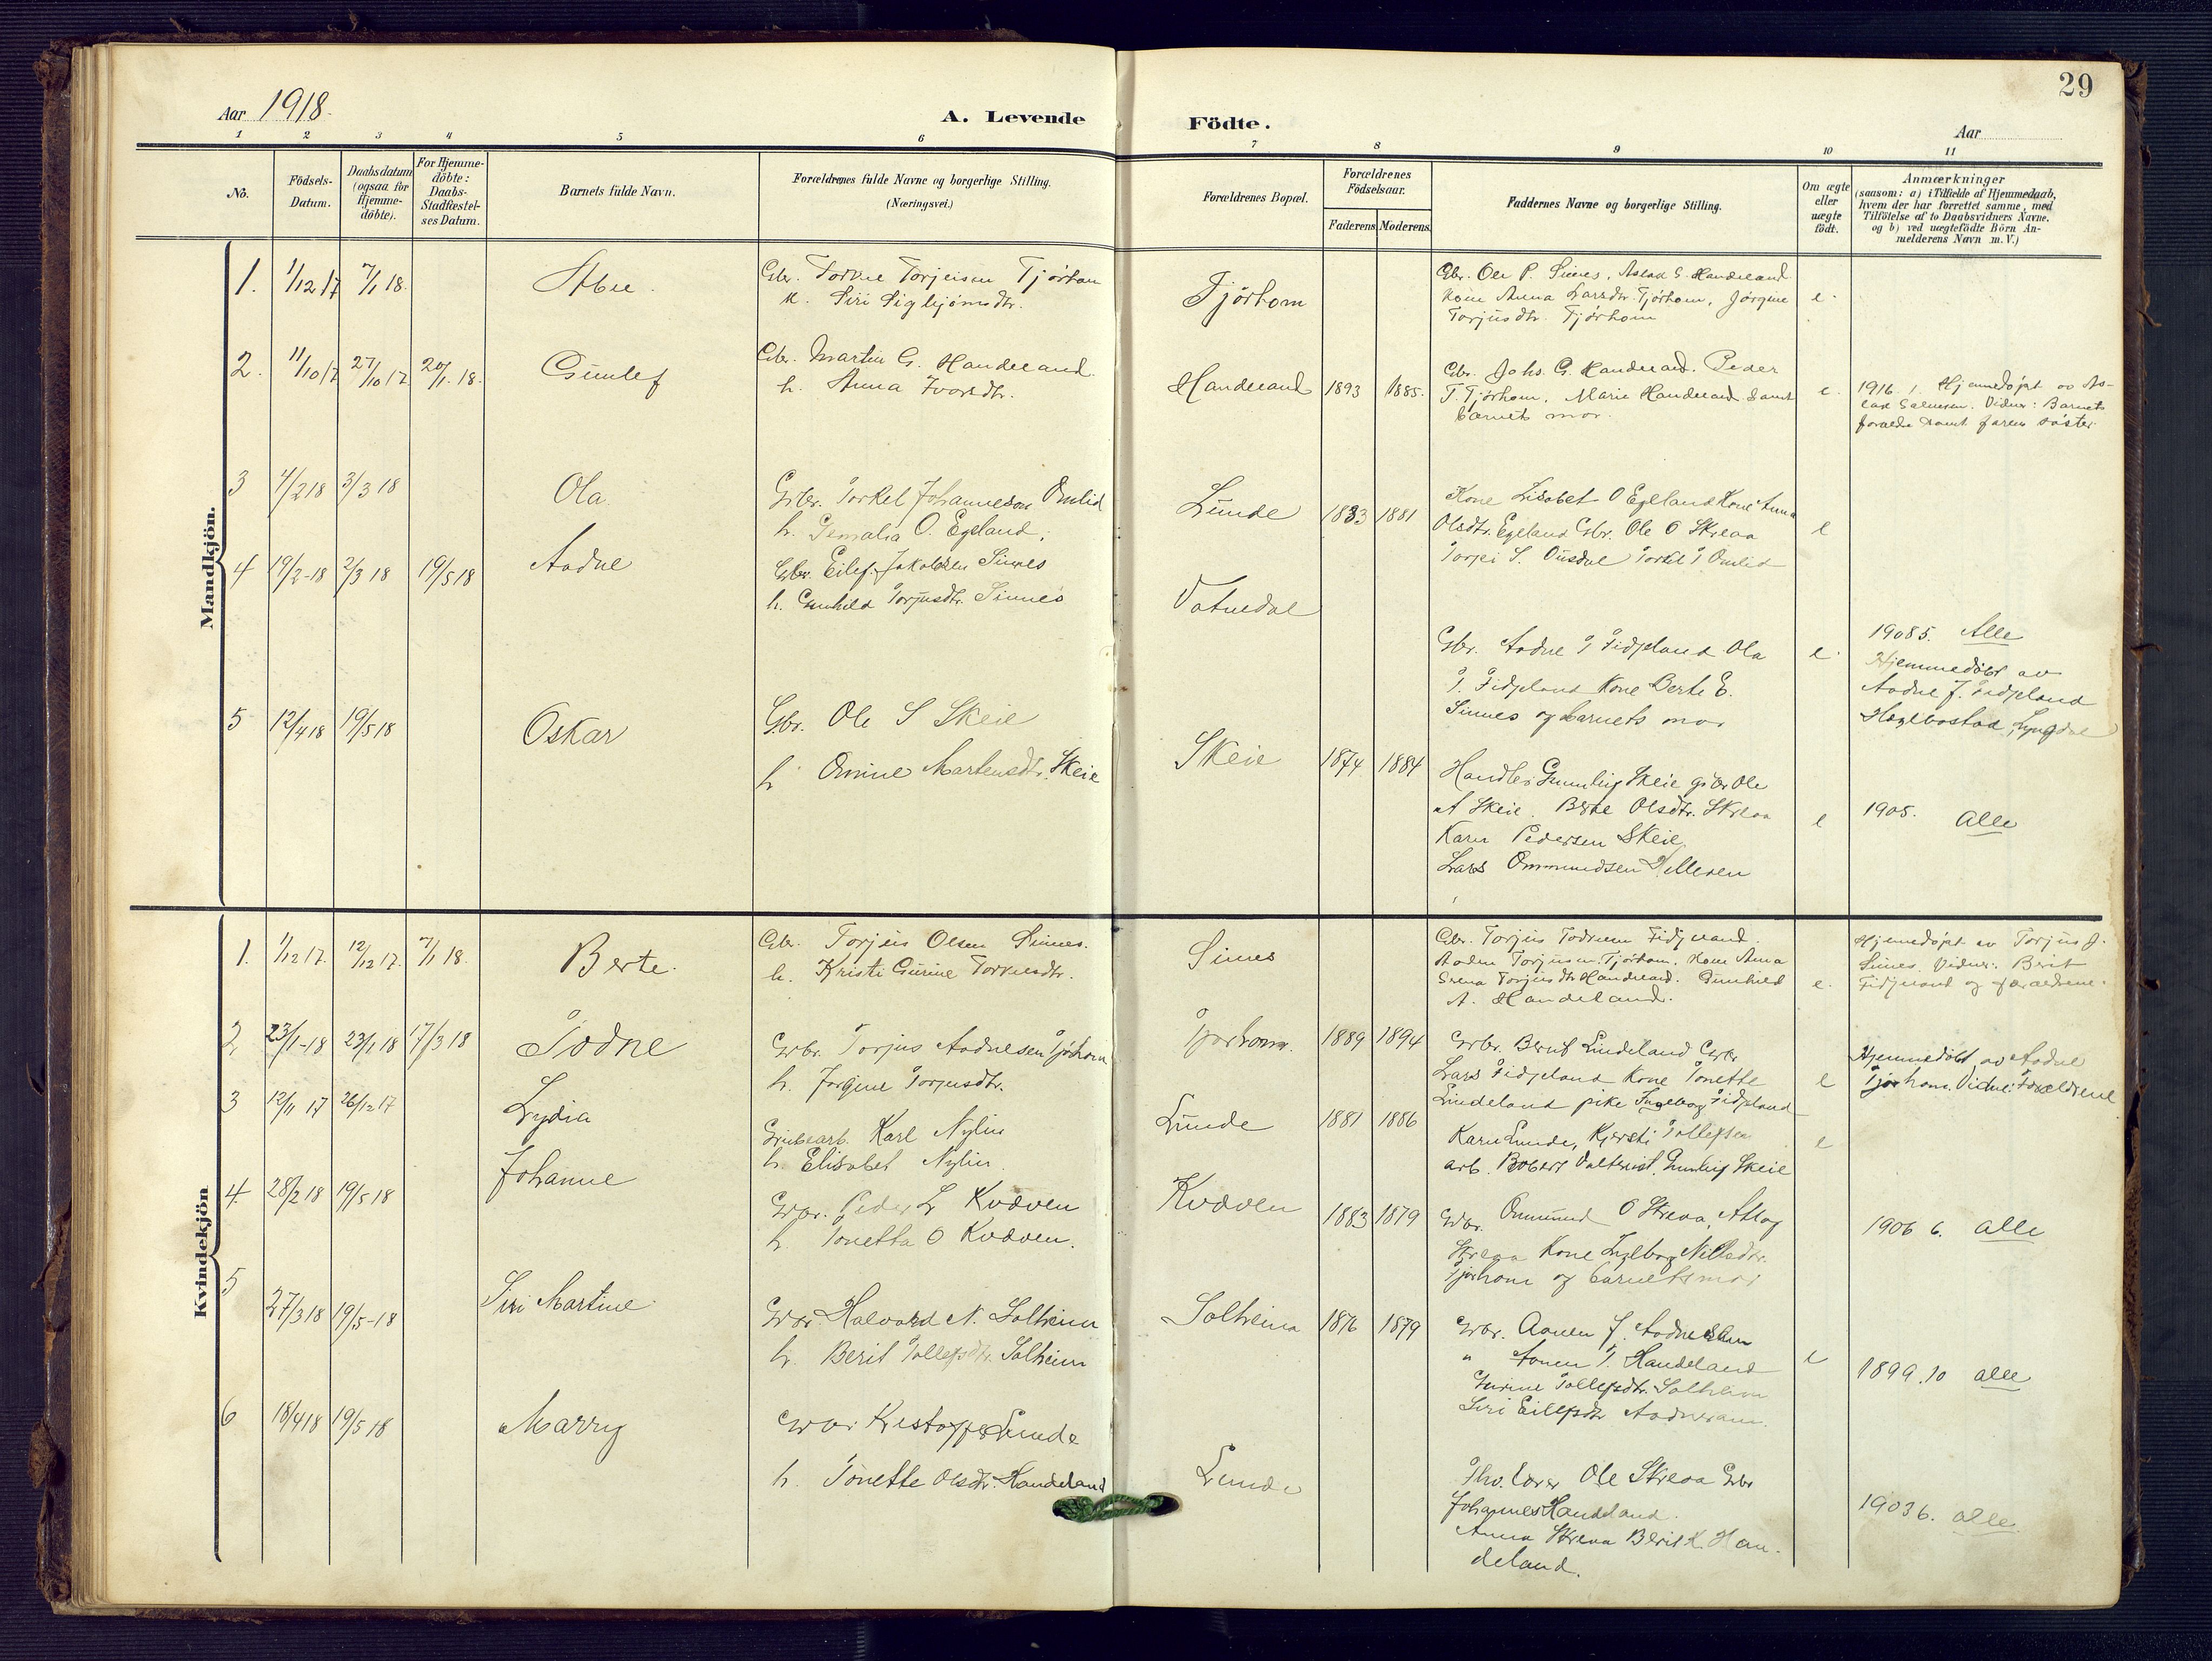 29
Aar 1918.
A. Levende Födte.
Aar
1 2 3 4 5 6 7 8 9 10 11
No.
Födsels-
Datum.
Daabsdatum
(ogsaa for
Hjemme-
döbte).
For Hjemme-
döbte:
Daabs-
Stadfæstel-
ses Datum.
Barnets fulde Navn.
Forældrenes fulde Navne og borgerlige Stilling.
(Næringsvei.)
Forældrenes Bopæl.
Forældrenes
Födselsaar.
Faderens Moderens.
Faddernes Navne og borgerlige Stilling.
Om ægte
eller
uægte
födt.
Anmærkninger
(saasom: a) i Tilfælde af Hjemmedaab,
hvem der har forrettet samme, med
Tilföielse af to Daabsvidners Navne.
og b) ved uægtefödte Börn An-
melderens Navn m. V.)
Mandkjön.
1. 1/12 17 7/1 18.
Gbr. Torjeisen Tjórhom
k. Siri Sigbjórnsdtr.
Tjórhom
Gbr. Ole P. Sinnes, Aslak G. Handeland
kone Anna Larsdtr. Tjórhom, Jórgine
Torjusdtr. Tjórhom
e.
2. 11/10 17 27/10 17 20/1. 18.
Gunlef
Gbr. Martin G. Handeland
h. Anna Ivarsdtr.
Handeland 1893 1885.
Gbr. Johs. G. Handeland. Peder
T. Tjórhom, Marie Handeland samt
barnets mor.
e.
1916. 1. Hjemmedópt av As-
Vidner: Barnets
foraeldre samt farens sóster
3 4/2 18 3/3 18
Ola
Gbr. Torkel Johannesen Omlid
h. O. Egeland.
Lunde 1883 1881
Kone Lisabet O Egeland Kone Anna
Olsdtr. Egeland Gbr. Ole O Skreaa
S. Ousdal Torkel T Omlid
e
4 19/2-18 2/3 18 19/5 18
Aadne
Gbr. Eilef Jakobsen Sinnes
h. Gunhild Torjusdtr. Sinnes
Vatnedal
Gbr. Aadne T Fidjeland Ola
T. Fidjeland Kone Berte E.
Sinnes og barnets mor
e.
1908 5. Alle
Hjemmedöbt av
Aadne J. Fidjeland
Hægebostad, Lyngdal
5 12/4 18 19/5 18
Oskar
Gbr. Ole S Skeie
h. Omine Martensdtr. Skeie
Skeie 1874 1884
Handler Gunleig Skeie gbr Ole
A Skeie. Berte Olsdtr. Skreaa
Karen Pedersen Skeie.
Lars Ommundsen
e
1905. Alle
Kvindekjön
1. 1/12 17. 12/12 17. 7/1 18.
Berte.
Gbr. Torjus Olsen Sinnes.
h. Kristi Gurine
Sinnes
Gbr. Torjus Fidjeland
Aaden Torjusen Tjórhom. Kone Anna
Serena Torjusdtr Handeland. Gunhild
A. Handeland.
e.
Hjemmedópt av Torjus J.
Sinnes. Vidner: Berit
Fidjeland og foraeldrene.
2. 23/1-18 23/1 18 17/3 18
Todne
Gbr. Torjus Aadnesen Tjórhom
h. Jorgine Torjusdtr.
Tjorhom. 1889 1894
Gbr. Berut Lindeland Gbr
Lars Fidjeland Kone Tonette
Lindeland pike Ingeborg Fidjeland
e
Hjemmedöbt av Aadne
Tjorhom. Vidne: Forældrene
3 12/11 17 26/12 17
Lydia
Grubearb. Karl Nylin
h. Elisabet Nylin
Lunde 1881 1886
Karen Lunde, Kjersti Tollefsen
arb. Robert Gunleig Skeie
e
4. 28/2 18 19/5 18
Johanne
Gbr. Peder L Kvæven
h. Tonetta O Kvæven.
Kvæven 1883 1879
Gbr. Ommund O Skreaa, Atlag
Skreaa Kone Ingeborg Nilsdtr.
Tjorhom og barnets mor
1906 6. alle
5 27/3 18 19/5-18
Siri Martine
Gbr. Halvard N. Solheim
h. Berit Tollefsdtr. Solheim
Solheim 1876 1879
Gbr. Aanen J. Aadneram
" Aanen T. Handeland
Gurine Tollefsdtr. Solheim
Siri Eilefsdtr Aadneram.
e
1899.10 alle
6 18/4 18 19/5 18
Marry
Gbr. Kristoffer Lunde
h. Tonette Olsdtr. Handeland
Lunde
lærer Ole Skreaa Gbr
Johannes Handeland.
Anna Skreaa Berit K. Han-
deland.
1903 6. alle